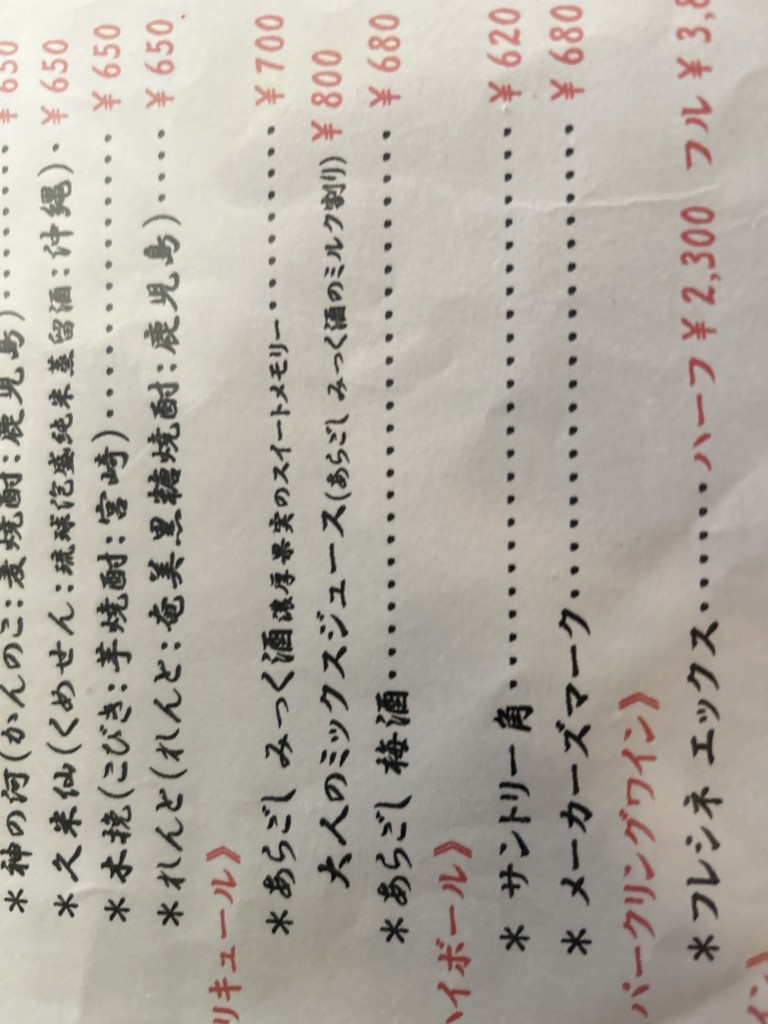 *神の河(かんのこ:麦焼酎:鹿児島)........¥650
*久米仙(くめせん:琉球泡盛純米蒸留酒:沖縄).¥650
*木挽(こびき:芋焼酎:宮崎)............¥650
*れんと(れんと:奄美黒糖焼酎:鹿児島)....¥650
リキュール》
*あらごし みっく酒 濃厚果実のスイートメモリー.........¥700
大人のミックスジュース(あらごし みっく酒のミルク割り) ¥800
*あらごし 梅酒..........................¥680
ハイボール》
* サントリー角...........................¥620
* メーカーズマーク......................¥680
パークリングワイン》
*フレシネ エックス......ハーフ¥2,300 フル¥3,8
イン》